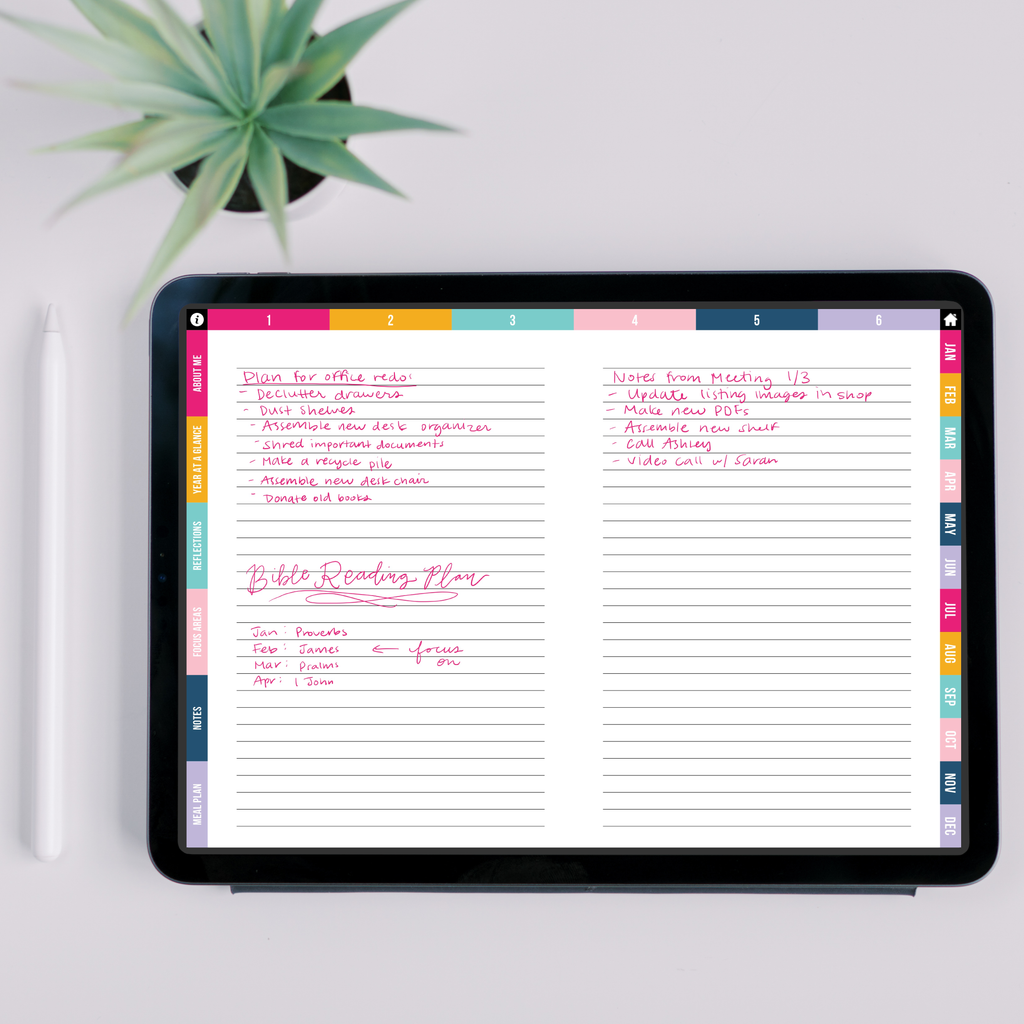 1
2
3
4
5
6
ABOUT ME
YEAR AT A GLANCE
REFLECTIONS
FOCUS AREAS
NOTES
MEAL PLAN
Plan for office redo:
- Declutter drawers
- Dust shelves
- Assemble new desk organizer
- Shred important documents
- Make a recycle pile
- Assemble new desk chair
- Donate old books
Bible Reading Plan
Jan: Proverbs
Feb: James ← focus
on
Mar: Psalms
Apr: 1 John
Notes from Meeting 1/3
- Update listing images in shop
- Make new PDFs
- Assemble new shelf
- Call Ashley
- Video call w/ Sarah
JAN
FEB
MAR
APR
MAY
JUN
JUL
AUG
SEP
OCT
NOV
DEC